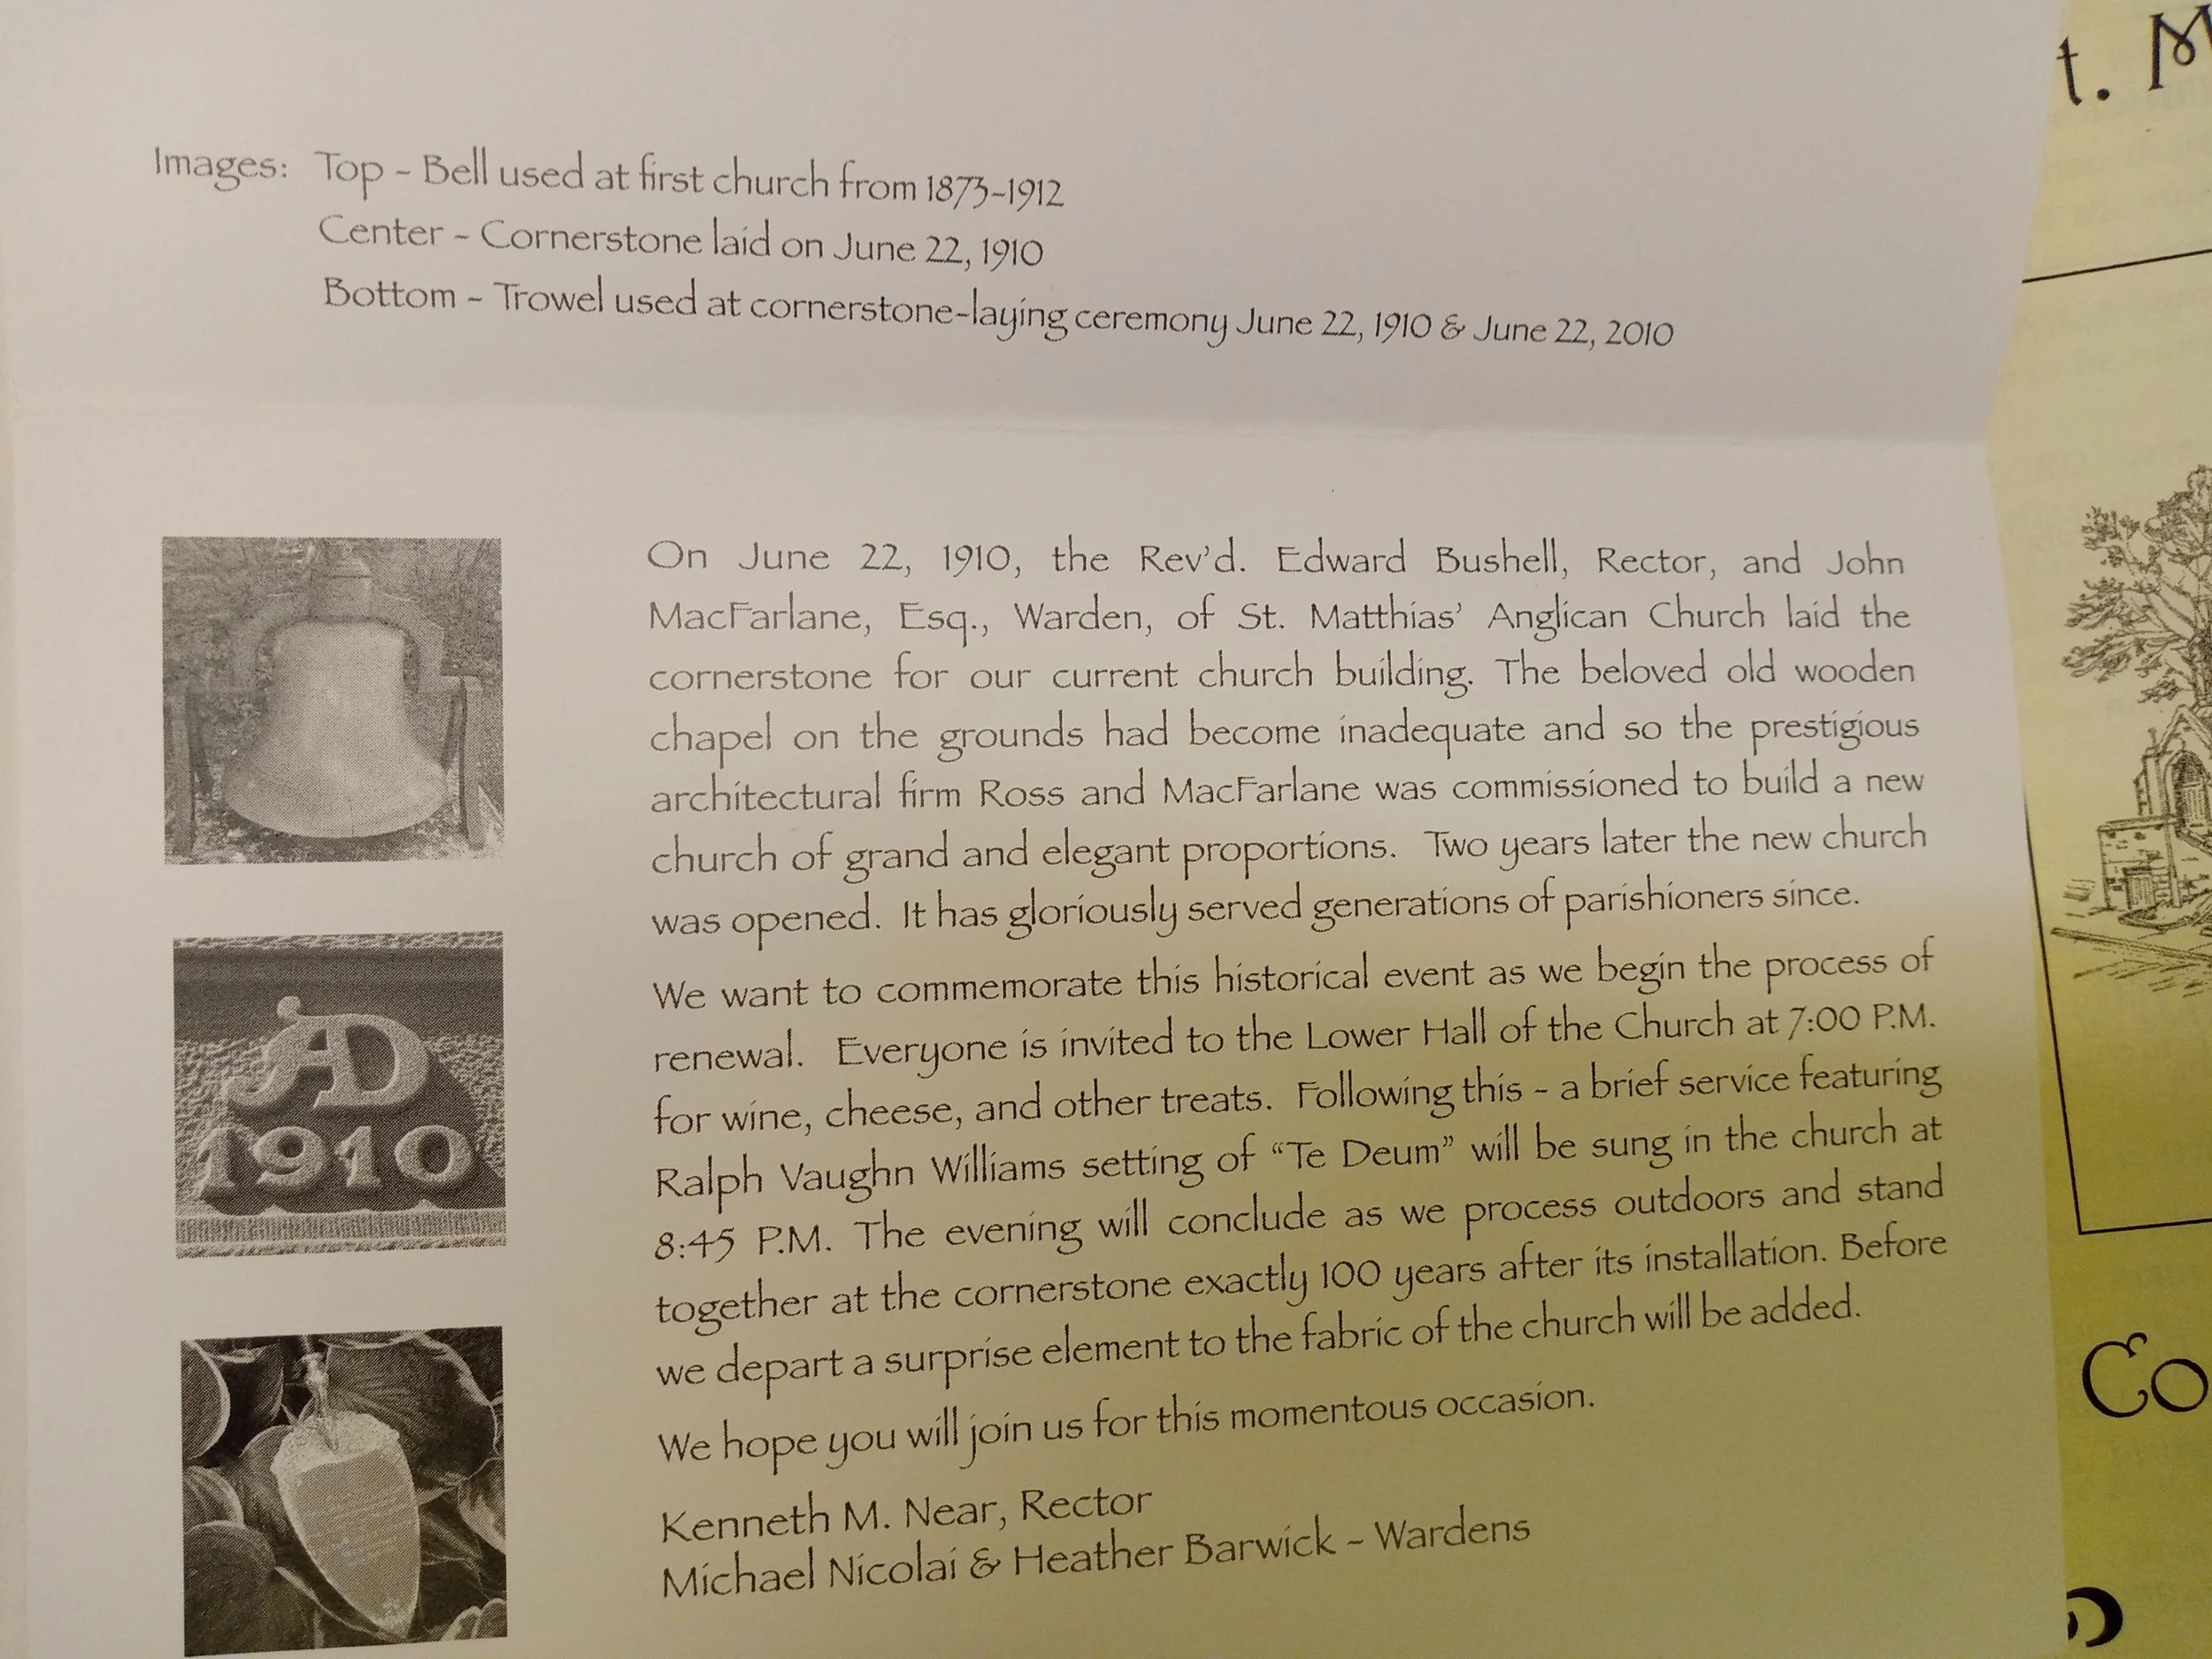 Images: Top - Bell used at first church from 1873-1912
Center - Cornerstone laid on June 22, 1910
Bottom - Trowel used at cornerstone-laying ceremony June 22, 1910 & June 22, 2010
On June 22, 1910, the Rev'd. Edward Bushell, Rector, and John
MacFarlane, Esq., Warden, of St. Matthias' Anglican Church laid the
cornerstone for our current church building. The beloved old wooden
chapel on the grounds had become inadequate and so the prestigious
architectural firm Ross and MacFarlane was commissioned to build a new
church of grand and elegant proportions. Two years later the new church
was opened. It has gloriously served generations of parishioners since.
We want to commemorate this historical event as we begin the process of
renewal. Everyone is invited to the Lower Hall of the Church at 7:00 P.M.
for wine, cheese, and other treats. Following this - a brief service featuring
Ralph Vaughn Williams setting of “Te Deum” will be sung in the church at
8:45 P.M. The evening will conclude as we process outdoors and stand
together at the cornerstone exactly 100 years after its installation. Before
we depart a surprise element to the fabric of the church will be added.
We hope you will join us for this momentous occasion.
Kenneth M. Near, Rector
Michael Nicolai & Heather Barwick - Wardens
AD
1910
t. M
Co